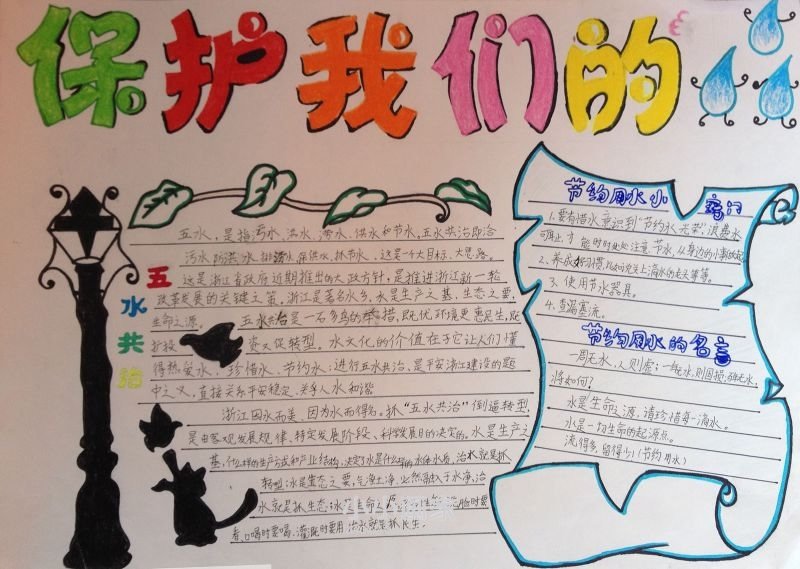 保护我们的
五水共治
五水，是指污水、洪水、涝水、供水和节水。五水共治即治
污水、防洪水、排涝水、保供水、抓节水，这是一个大目标、大思路。
这是浙江省政府近期推出的大政方针，是推进浙江新一轮
改革发展的关键之策。浙江是著名水乡，水是生产之基、生态之要、
生命之源。五水共治是一石多鸟的举措，既优环境更惠民生，既
扩投资又促转型。水文化的价值在于它让人们懂
得热爱水、珍惜水、节约水；进行五水共治，是平安浙江建设的题
中之义，直接关系平安稳定、关乎人水和谐
浙江因水而美、因为水而得名。抓“五水共治”倒逼转型，
是由客观发展规律、特定发展阶段、科学发展目的决定的。水是生产之
基，什么样的生产方式和产业结构，决定了水是什么样的水体水质，治水就是抓
转型；水是生态之要，气净土净，必然融入于水净，治
水就是抓生态；水是生命之源，洗脸时要
看、口喝时要喝、灌溉时要用，治水就是抓民生。
节约用水小窍门
1.要有惜水意识到“节约水光荣，浪费水
可耻，才能时时处处注意节水，从身边的小事做起
2.养成好习惯，比如说关上滴水的龙头等等。
3.使用节水器具。
4.查漏塞流。
节约用水的名言
一周无水，人则虑；一年无水，则国损；
将如何？
水是生命之源，请珍惜每一滴水。
水是一切生命的起源点。
流得多，留得少！（节约用水）